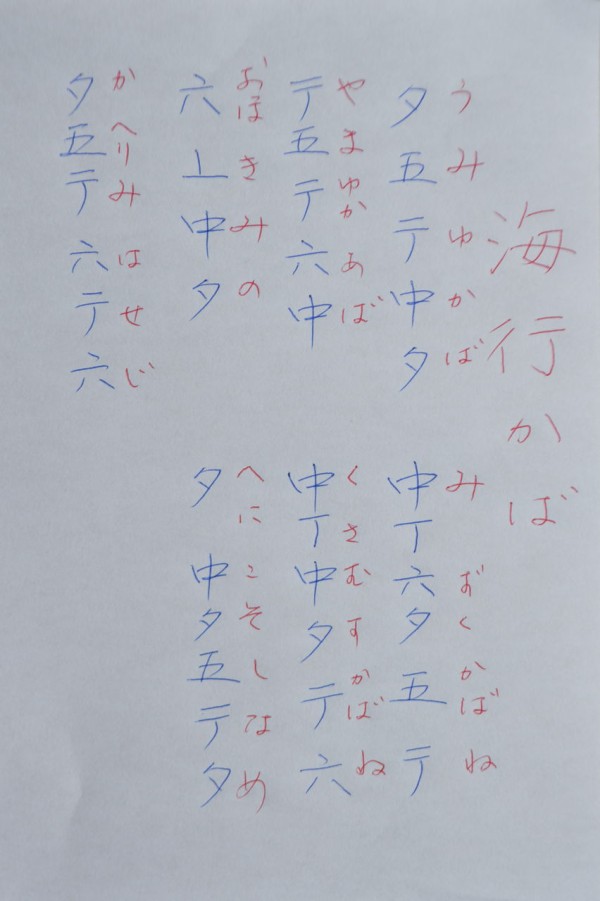 海行かば
うみゆかば
夕五テ中夕
みずくかばね
中丁六夕五テ
やまゆかあば
テ五テ六中
くさむすかばね
中丁中夕テ六
おほきみの
六⊥中夕
へにこそしなめ
夕中夕五テ夕
かへりみはせじ
夕五テ六テ六